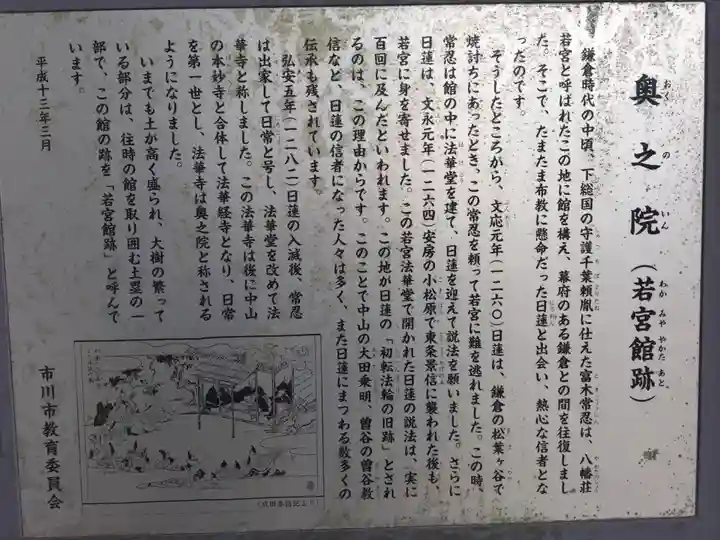 奥之院(若宮館跡)
おくのいん
わかみややかたあと
鎌倉時代の中頃、下総国の守護千葉頼胤に仕えた富木常忍は、八幡荘
若宮と呼ばれたこの地に館を構え、幕府のある鎌倉との間を往復しまし
た。そこで、たまたま布教に懸命だった日蓮と出会い、熱心な信者とな
ったのです。
そうしたところから、文応元年(一二六〇)日蓮は、鎌倉の松葉ヶ谷で
焼討ちにあったとき、この常忍を頼って若宮に難を逃れました。この時、
常忍は館の中に法華堂を建て、日蓮を迎えて説法を願いました。さらに
日蓮は、文永元年(一二六四)安房の小松原で東条景信に襲われた後も、
若宮に身を寄せました。この若宮法華堂で開かれた日蓮の説法は、実に
百回に及んだといわれます。この地が日蓮の「初転法輪の旧跡」とされ
るのは、この理由からです。このことで中山の大田乗明、曽谷の曽谷教
信など、日蓮の信者になった人々は多く、また日蓮にまつわる数多くの
伝承も残されています。
弘安五年(一二八二)日蓮の入滅後、常忍
は出家して日常と号し、法華堂を改めて法
華寺と称しました。この法華寺は後に中山
の本妙寺と合体して法華経寺となり、日常
を第一世とし、法華寺は奥之院と称される
ようになりました。
いまでも土が高く盛られ、大樹の繁って
いる部分は、往時の館を取り囲む土塁の一
部で、この館の跡を「若宮館跡」と呼んで
います。
平成十三年三月
市川市教育委員会